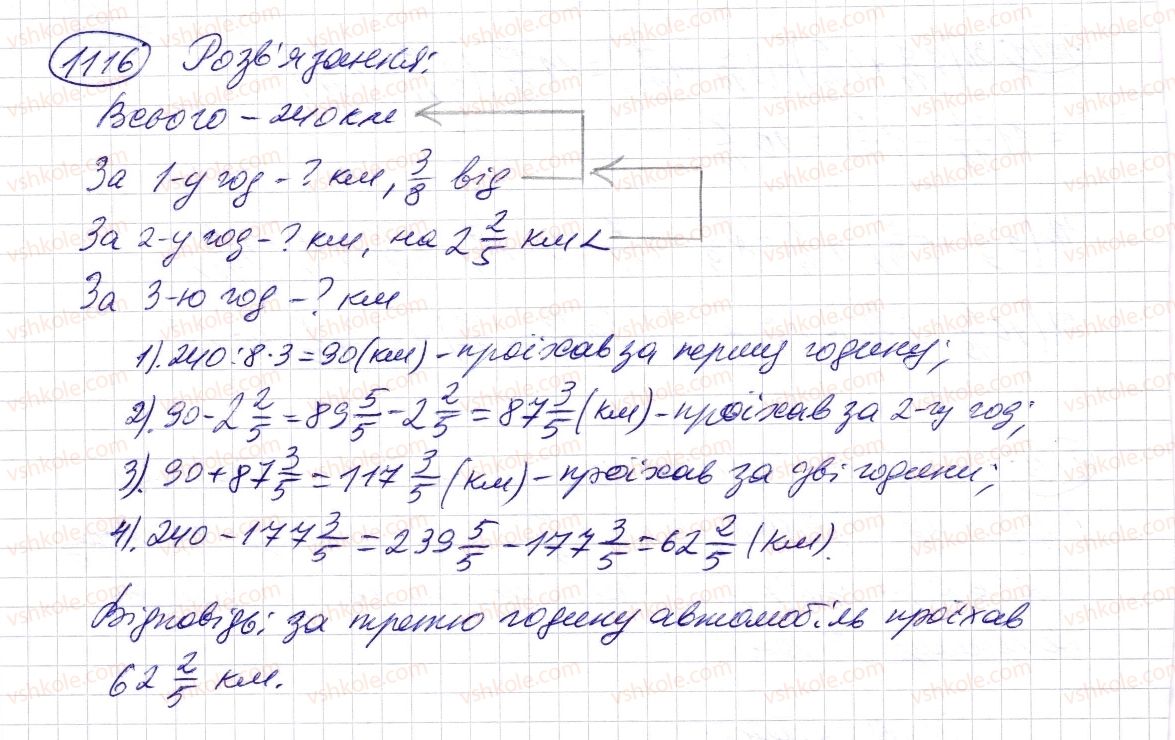 1116 Розв'язання:
Всього – 240 км
За 1-у год – ? км, 3/8 від
За 2-у год – ? км, на 2 2/5 км <
За 3-ю год – ? км
1). 240 : 8 · 3 = 90 (км) – проїхав за першу годину;
2). 90 – 2 2/5 = 89 5/5 – 2 2/5 = 87 3/5 (км) – проїхав за 2-гу год;
3). 90 + 87 3/5 = 117 3/5 (км) – проїхав за дві години;
4). 240 – 177 3/5 = 239 5/5 – 177 3/5 = 62 2/5 (км).
Відповідь: за третю годину автомобіль проїхав
62 2/5 км.
vshkole.com